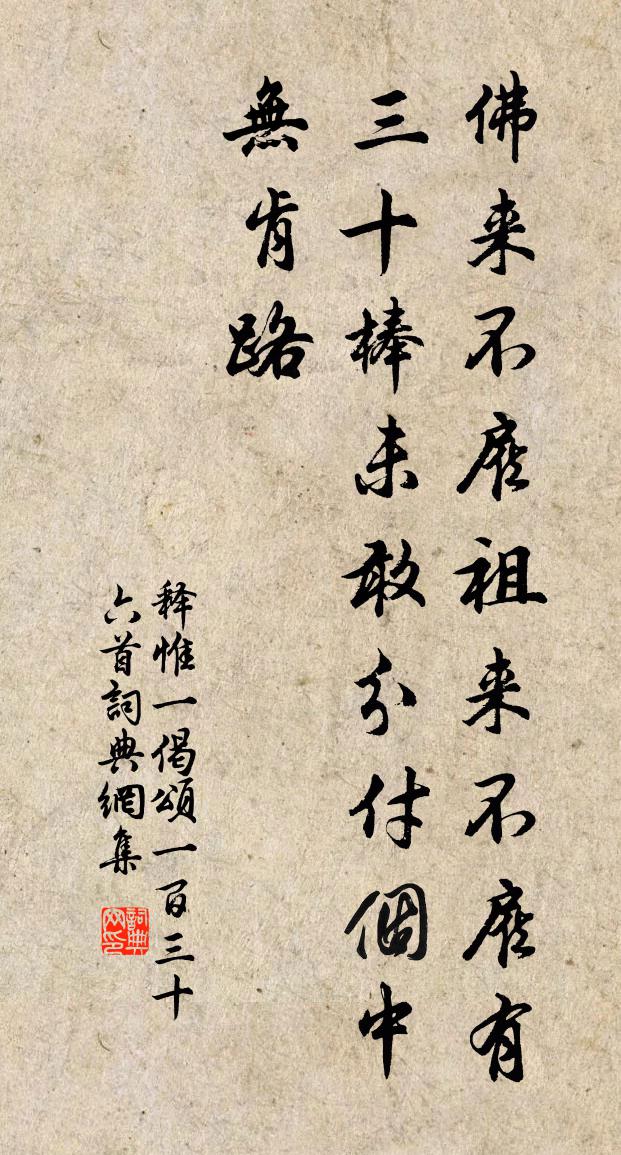 佛来不應祖来不應有
三十棒未敢分付個中
無肯路
释惟一偈頌一百三十
六首詞典網集
詞典网印